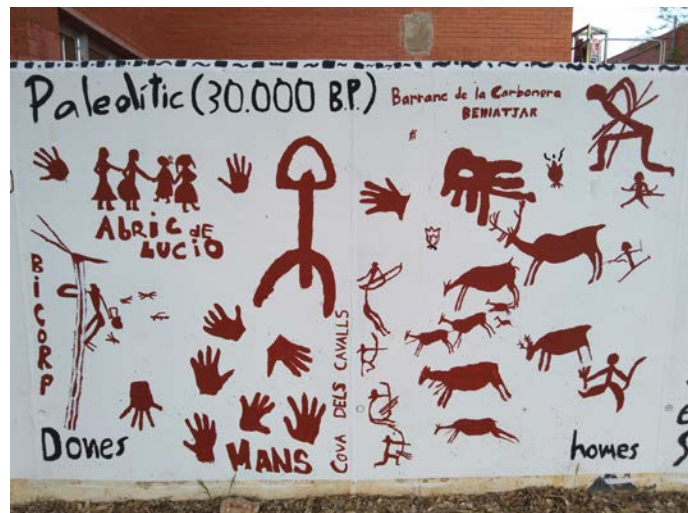 Paleolític (30.000 B.P.)
Barranc de la Carbonera
BENIATJAR
ABRIC DE
LUCIO
BICORP
COVA DELS CAVALLS
MANS
Dones
homes